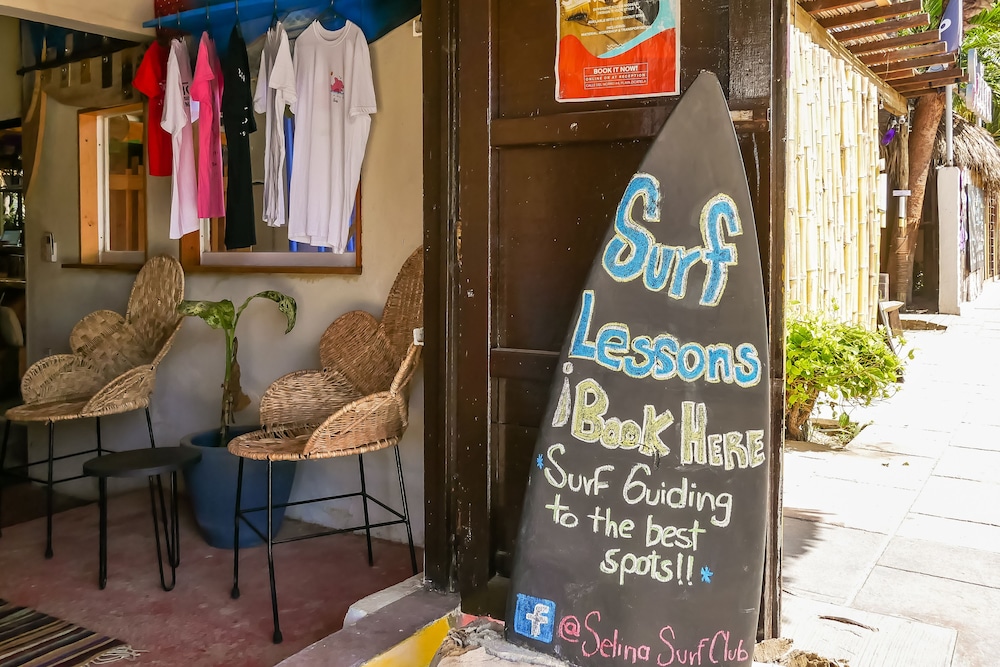 BOOK IT NOW!
Surf
Lessons
¡Book Here
*Surf Guiding
to the best
spots!!*
f @Selina Surf Club